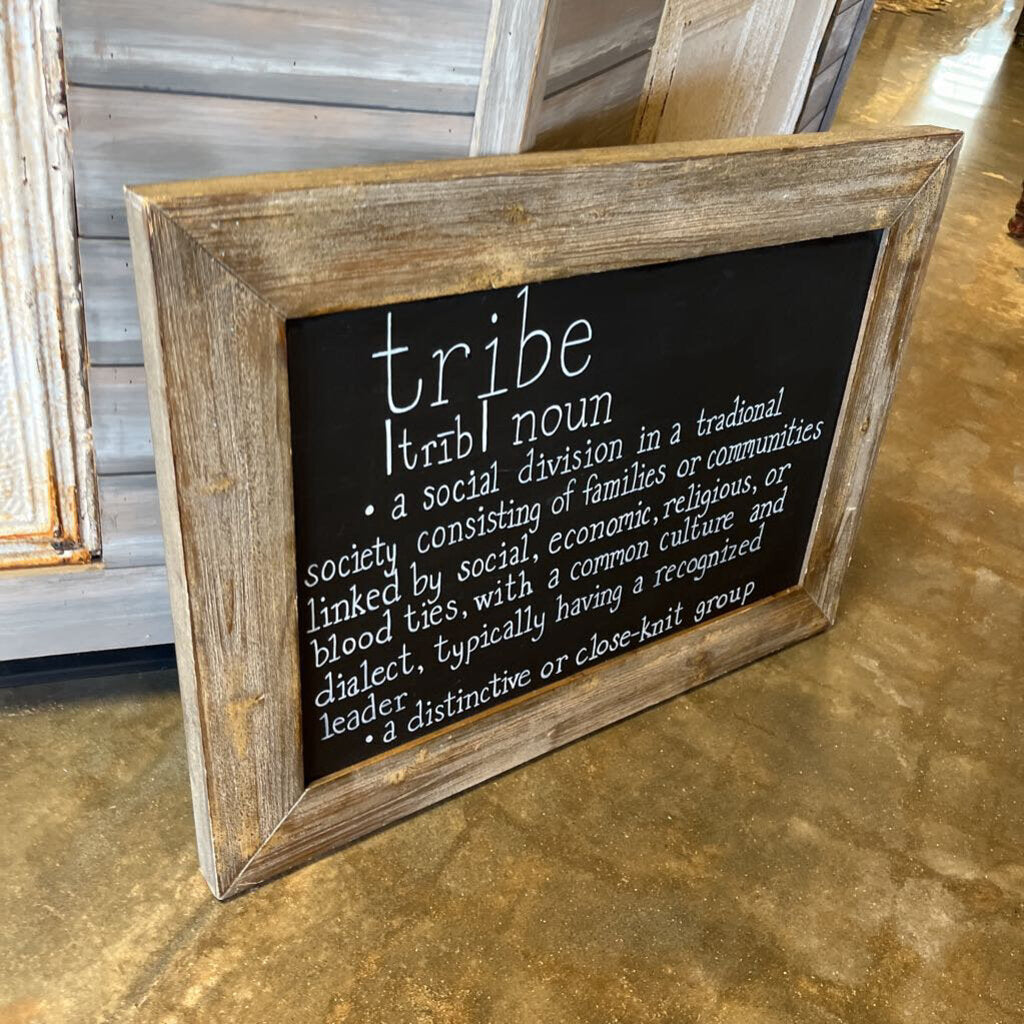 tribe
|trīb| noun
• a social division in a tradional
society consisting of families or communities
linked by social, economic, religious, or
blood ties, with a common culture and
dialect, typically having a recognized
leader
• a distinctive or close-knit group